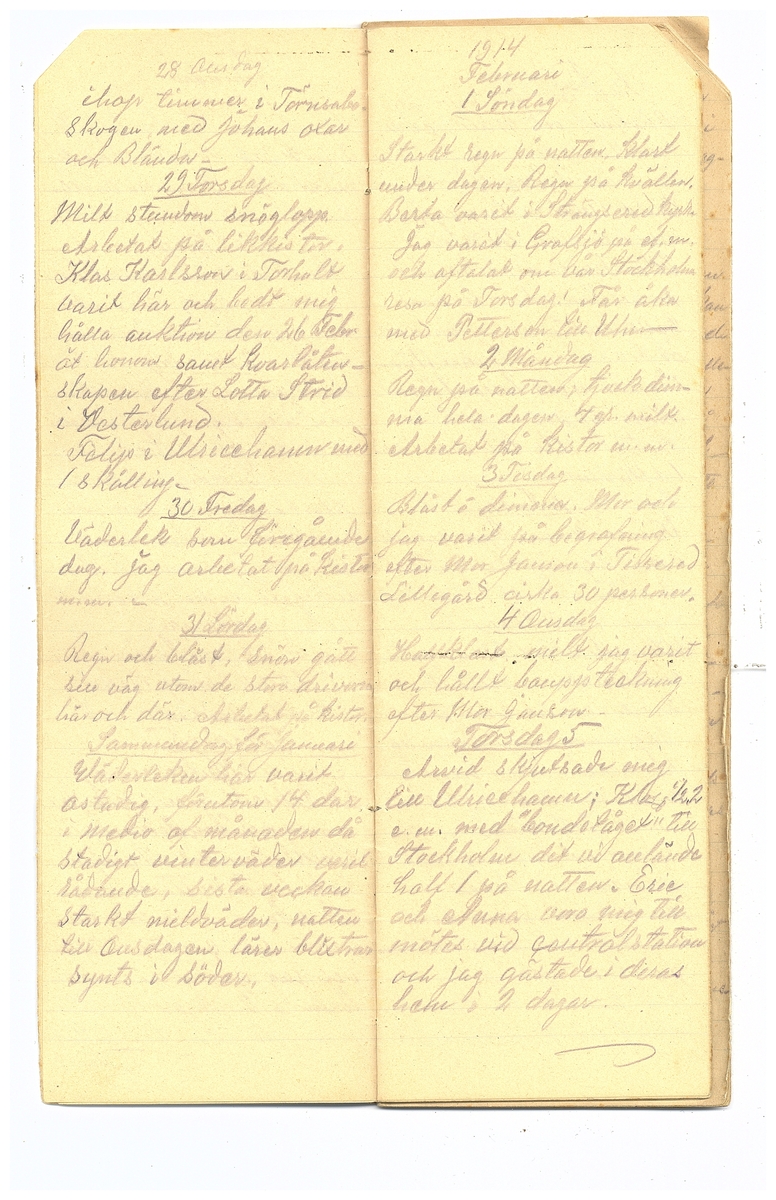 28 Onsdag
ihop timmer i Törnsabo
Skogen med Johans oxar
och Blända -
29 Torsdag
Mildt stundom snöglopp
Arbetat på likkistor.
Klas Karlsson i Torholt
varit här och bedt mig
hålla auktion den 26 Febr
åt honom samt kvarlåten-
skapen efter Lotta Strid
i Vesterlund.
Filip i Ulricehamn med
1 skålling -
30 Fredag
Väderlek som föregående
dag. jag arbetat på kistor
m.m. -
31 Lördag
Regn och blåst, snön gått
sin väg utom de stora drivorna
här och där. Arbetat på kistor.
Sammandrag för Januari
Väderleken har varit
ostadig, förutom 14 dar
i medio af månaden då
stadigt vinterväder varit
rådande, sista veckan
starkt mildväder, natten
till Onsdagen lärer blixtrar
synts i söder.
1914
Februari
1 Söndag
Starkt regn på natten, klart
under dagen, Regn på kvällen.
Berta varit i Strängsered kyrk.
Jag varit i Grafsjö på ef.m.
och aftalat om vår Stockholm
resa på Torsdag! Får åka
med Petterson till Uhn
2 Måndag
Regn på natten, tjock dim-
ma hela dagen, 4 gr. mildt
Arbetat på kistor m.m.
3 Tisdag
Blåst o dimma. Mor och
jag varit på begrafning
efter Mor Janson i Tissered
Lillegård cirka 30 personer.
4 Onsdag
mildt jag varit
och hållt bouppteckning
efter Mor Janson -
Torsdag 5
Arvid skjutsade mig
till Ulricehamn; Klas, 1/2 2
e.m. med "bondetåget" till
Stockholm dit vi anlände
half 1 på natten. Eric
och Anna voro mig till
mötes vid centralstation
och jag gästade i deras
hem i 2 dagar.